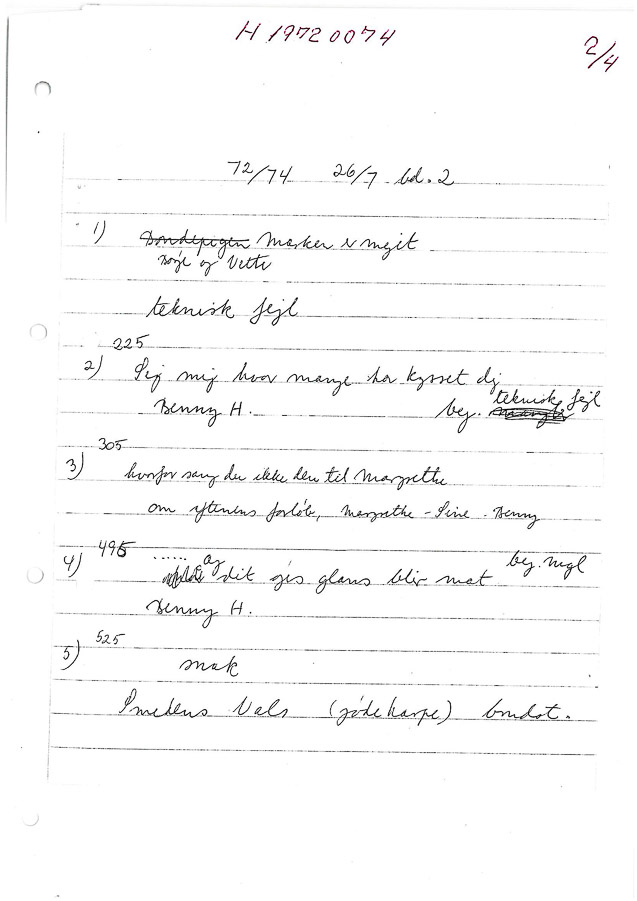 H 19720074
2/4
72/74 26/7 bd. 2
1) Bondepigen Marken er mejet
Bøje og Vette
teknisk fejl
225
2) Sig mig hvor mange har kysset dig
Benny H. beg. mangler teknisk fejl
305
3) hvorfor sang du ikke den til Margrethe
om aftenens forløb, Margrethe - Sine - Benny
495
4) ...... og dit øjes glans blir mat beg. mgl
Benny H.
525
5) snak
Smedens Vals (jødeharpe) bmdst.